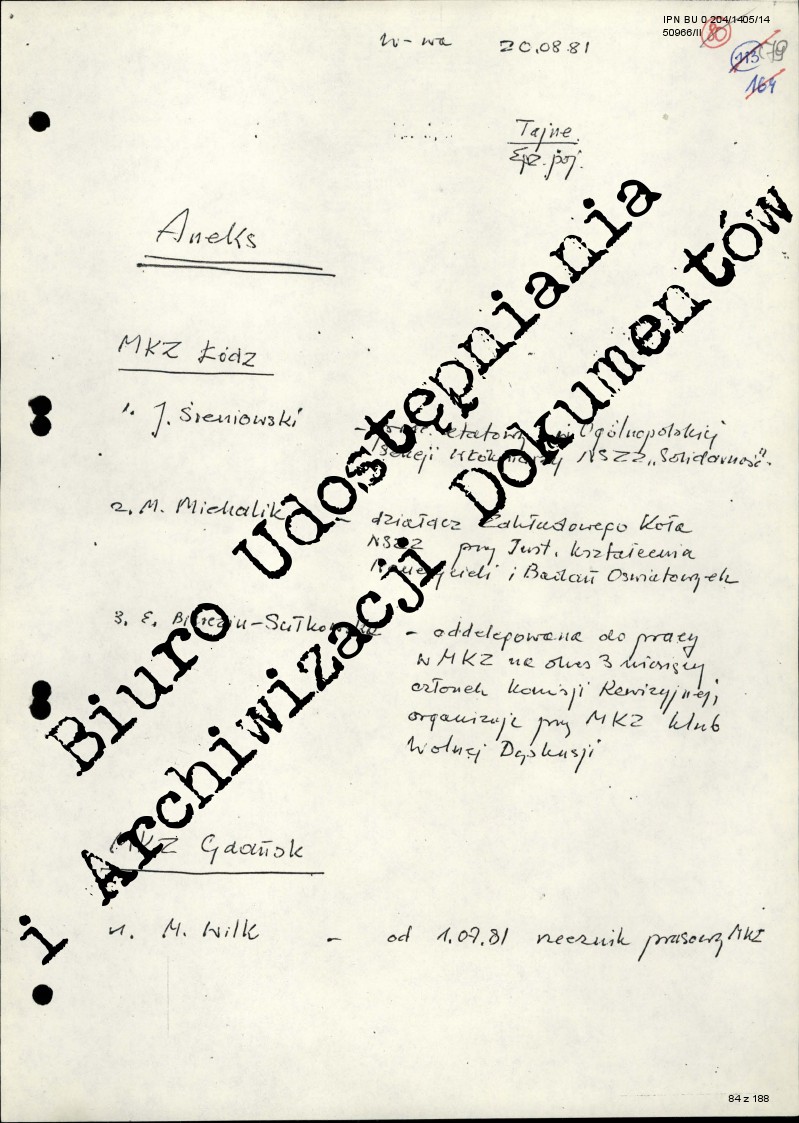 IPN BU 0 204/1405/14
50966/II
80
113
79
164
W-wa 20.08.81
Tajne
Egz. poj.
Aneks
MKZ Łódź
1. J. Śreniowski - etatowy Ogólnopolskiej
Sekcji Włókniarzy NSZZ „Solidarność".
2. M. Michalik - działacz Zakładowego Koła
NSZZ przy Inst. Kształcenia
Nauczycieli i Badań Oświatowych
3. E. - oddelegowana do pracy
w MKZ na okres 3 miesięcy
członek Komisji Rewizyjnej,
organizuje przy MKZ klub
Wolnej Dyskusji
MKZ Gdańsk
1. M. Wilk - od 1.07.81 rzecznik prasowy MKZ
Biuro Udostępniania
i Archiwizacji Dokumentów
84 z 188